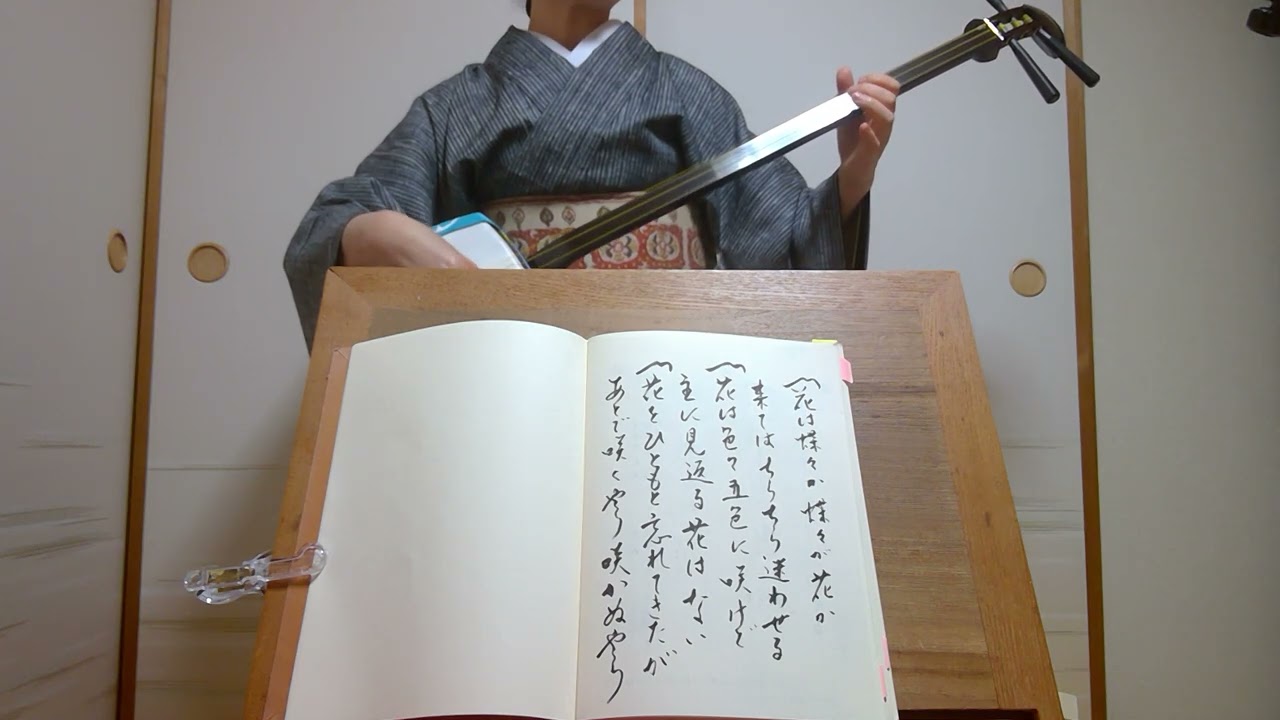 〽花は蝶々か蝶々が花か
来てはちらちら迷わせる
〽花は色々五色に咲けど
主に見返る花はない
〽花をひともと忘れてきたが
あとで咲くやら咲かぬやら